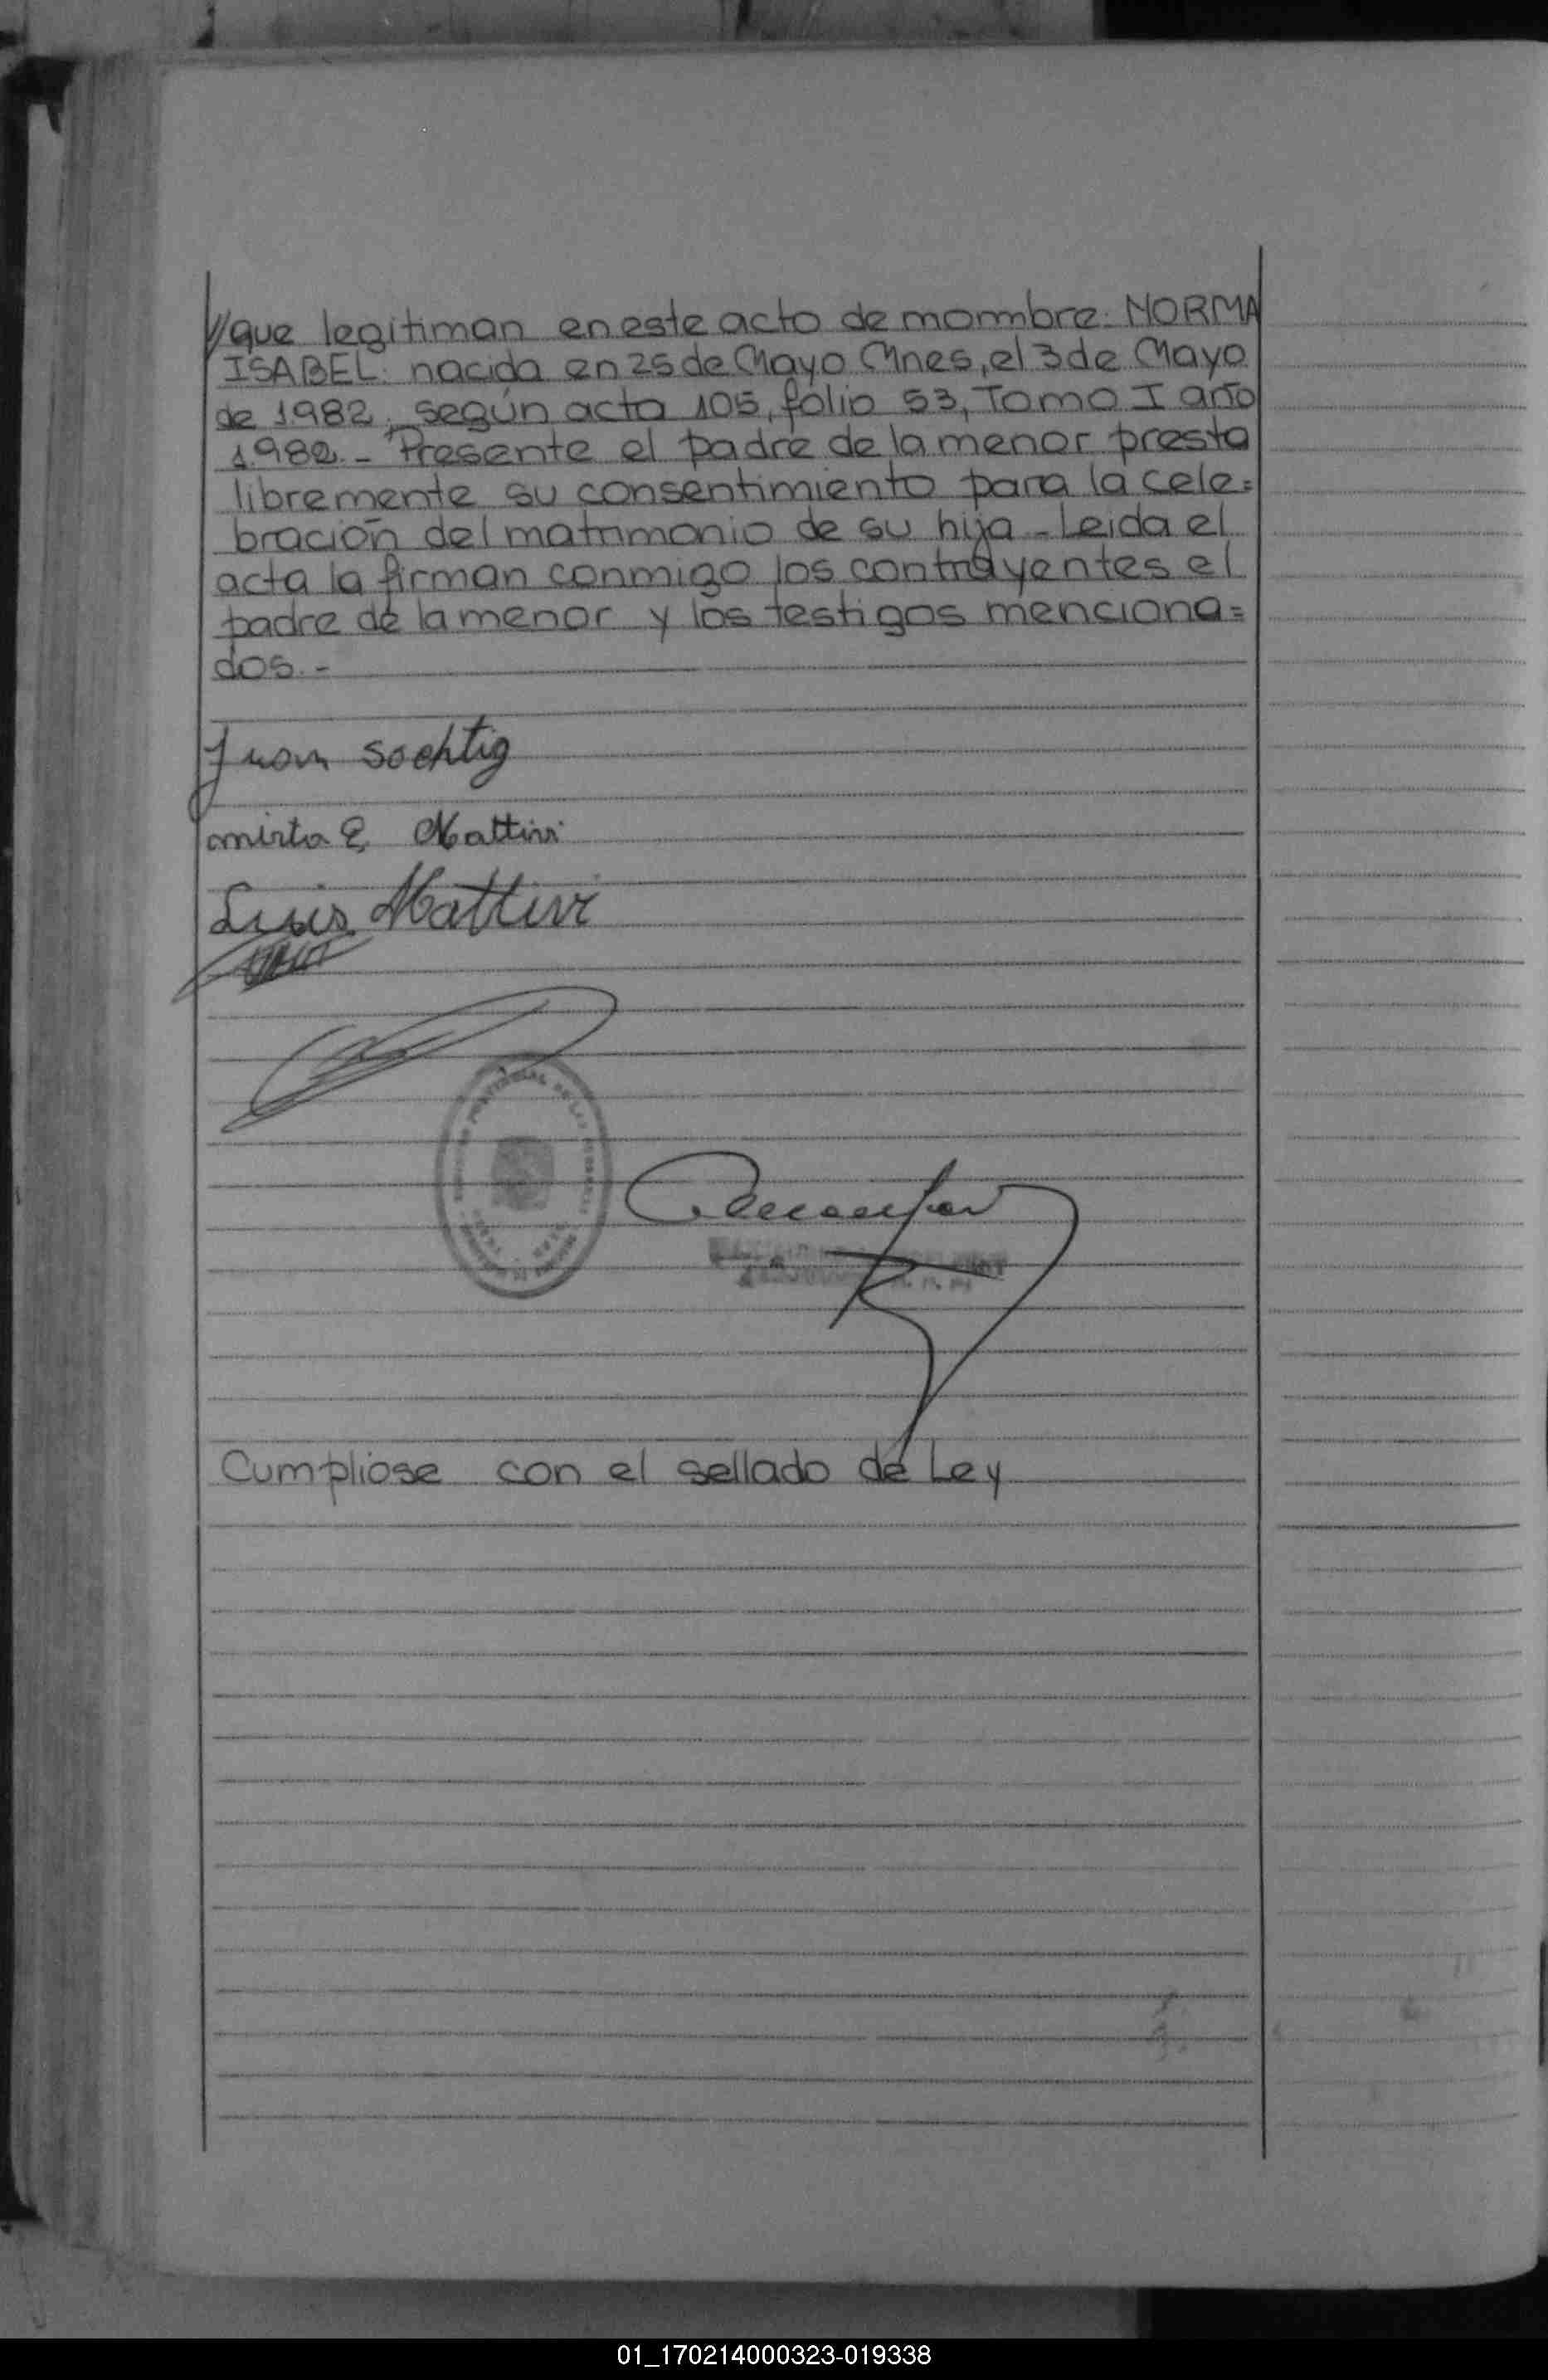 //que legitiman en este acto de mombre: NORMA
ISABEL: nacida en 25 de Mayo Mnes, el 3 de Mayo
de 1.982; según acta 105, folio 53, Tomo I año
1.982.- Presente el padre de la menor presta
libremente su consentimiento para la cele=
bración del matrimonio de su hija - Leida el
acta la firman conmigo los contrayentes el
padre de la menor y los testigos menciona=
dos.-
Juan Sochtig
mirta E, Mattivi
Luis Mattivi
Cumpliose con el sellado de Ley
01_170214000323-019338